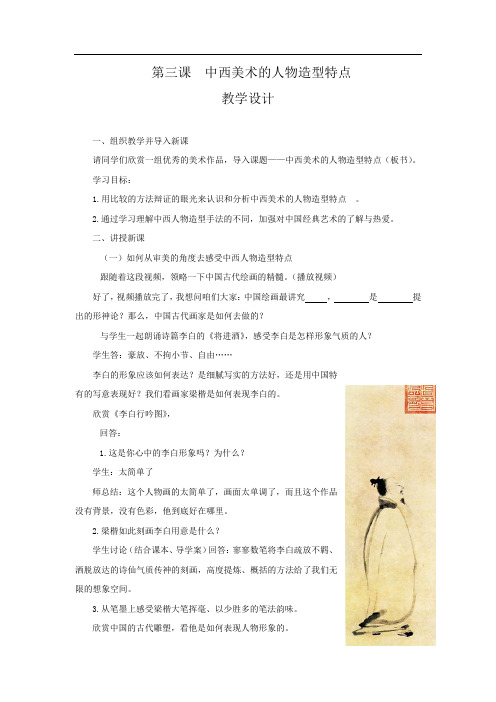 第三课 中西美术的人物造型特点
教学设计
一、组织教学并导入新课
请同学们欣赏一组优秀的美术作品，导入课题——中西美术的人物造型特点（板书）。
学习目标：
1.用比较的方法辩证的眼光来认识和分析中西美术的人物造型特点 。
2.通过学习理解中西人物造型手法的不同，加强对中国经典艺术的了解与热爱。
二、讲授新课
（一）如何从审美的角度去感受中西人物造型特点
跟随着这段视频，领略一下中国古代绘画的精髓。（播放视频）
好了，视频播放完了，我想问咱们大家：中国绘画最讲究 ， 是 提
出的形神论？那么，中国古代画家是如何去做的？
与学生一起朗诵诗篇李白的《将进酒》，感受李白是怎样形象气质的人？
学生答：豪放、不拘小节、自由……
李白的形象应该如何表达？是细腻写实的方法好，还是用中国特
有的写意表现好？我们看画家梁楷是如何表现李白的。
欣赏《李白行吟图》，
回答：
1.这是你心中的李白形象吗？为什么？
学生：太简单了
师总结：这个人物画的太简单了，画面太单调了，而且这个作品
没有背景，没有色彩，他到底好在哪里。
2.梁楷如此刻画李白用意是什么？
学生讨论（结合课本、导学案）回答：寥寥数笔将李白疏放不羁、
洒脱放达的诗仙气质传神的刻画，高度提炼、概括的方法给了我们无
限的想象空间。
3.从笔墨上感受梁楷大笔挥毫、以少胜多的笔法韵味。
欣赏中国的古代雕塑，看他是如何表现人物形象的。